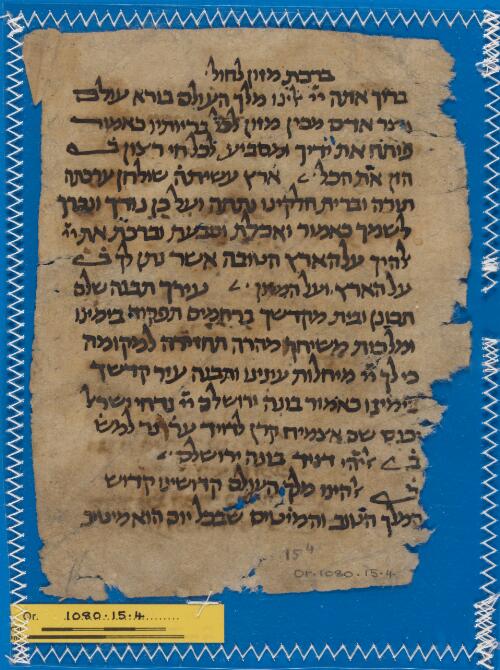 ברכת מזון לחול
ברוך אתה ייי אלהינו מלך העולם בורא עולם
ויוצר אדם מכין מזון לכל בריותיו כאמור
פותח את ידיך ומסביע לכל חי רצון ב
הזן את הכל ארץ עשיתה שולחן ערכתה
תורה וברית חלקינו נתתה ועל כן נודך ונברך
לשמך כאמור ואכלת ושבעת וברכת את ייי
להיך על הארץ הטובה אשר נתן לך ב
על הארץ ועל המזון עירך תבנה שלם
תכונן ובית מקדשך ברחמים תפקוד בימינו
ומלכות משיחך מהרה תחזירה למקומה
כי לך ייי מיוחלות עינינו ותבנה עיר קדשך
בימינו כאמור בונה ירושלם ייי נדחי ישראל
יכנס שם אצמיח קרן לדויד ערכתי נר למש
ב אלהי דויד בונה ירושלם
ב להינו מלך העולם קדושינו קדוש
המלך הטוב והמטיב שבכל יום הוא מיטיב
15 4
Or.1080.15.4
Or. 1080.15.4